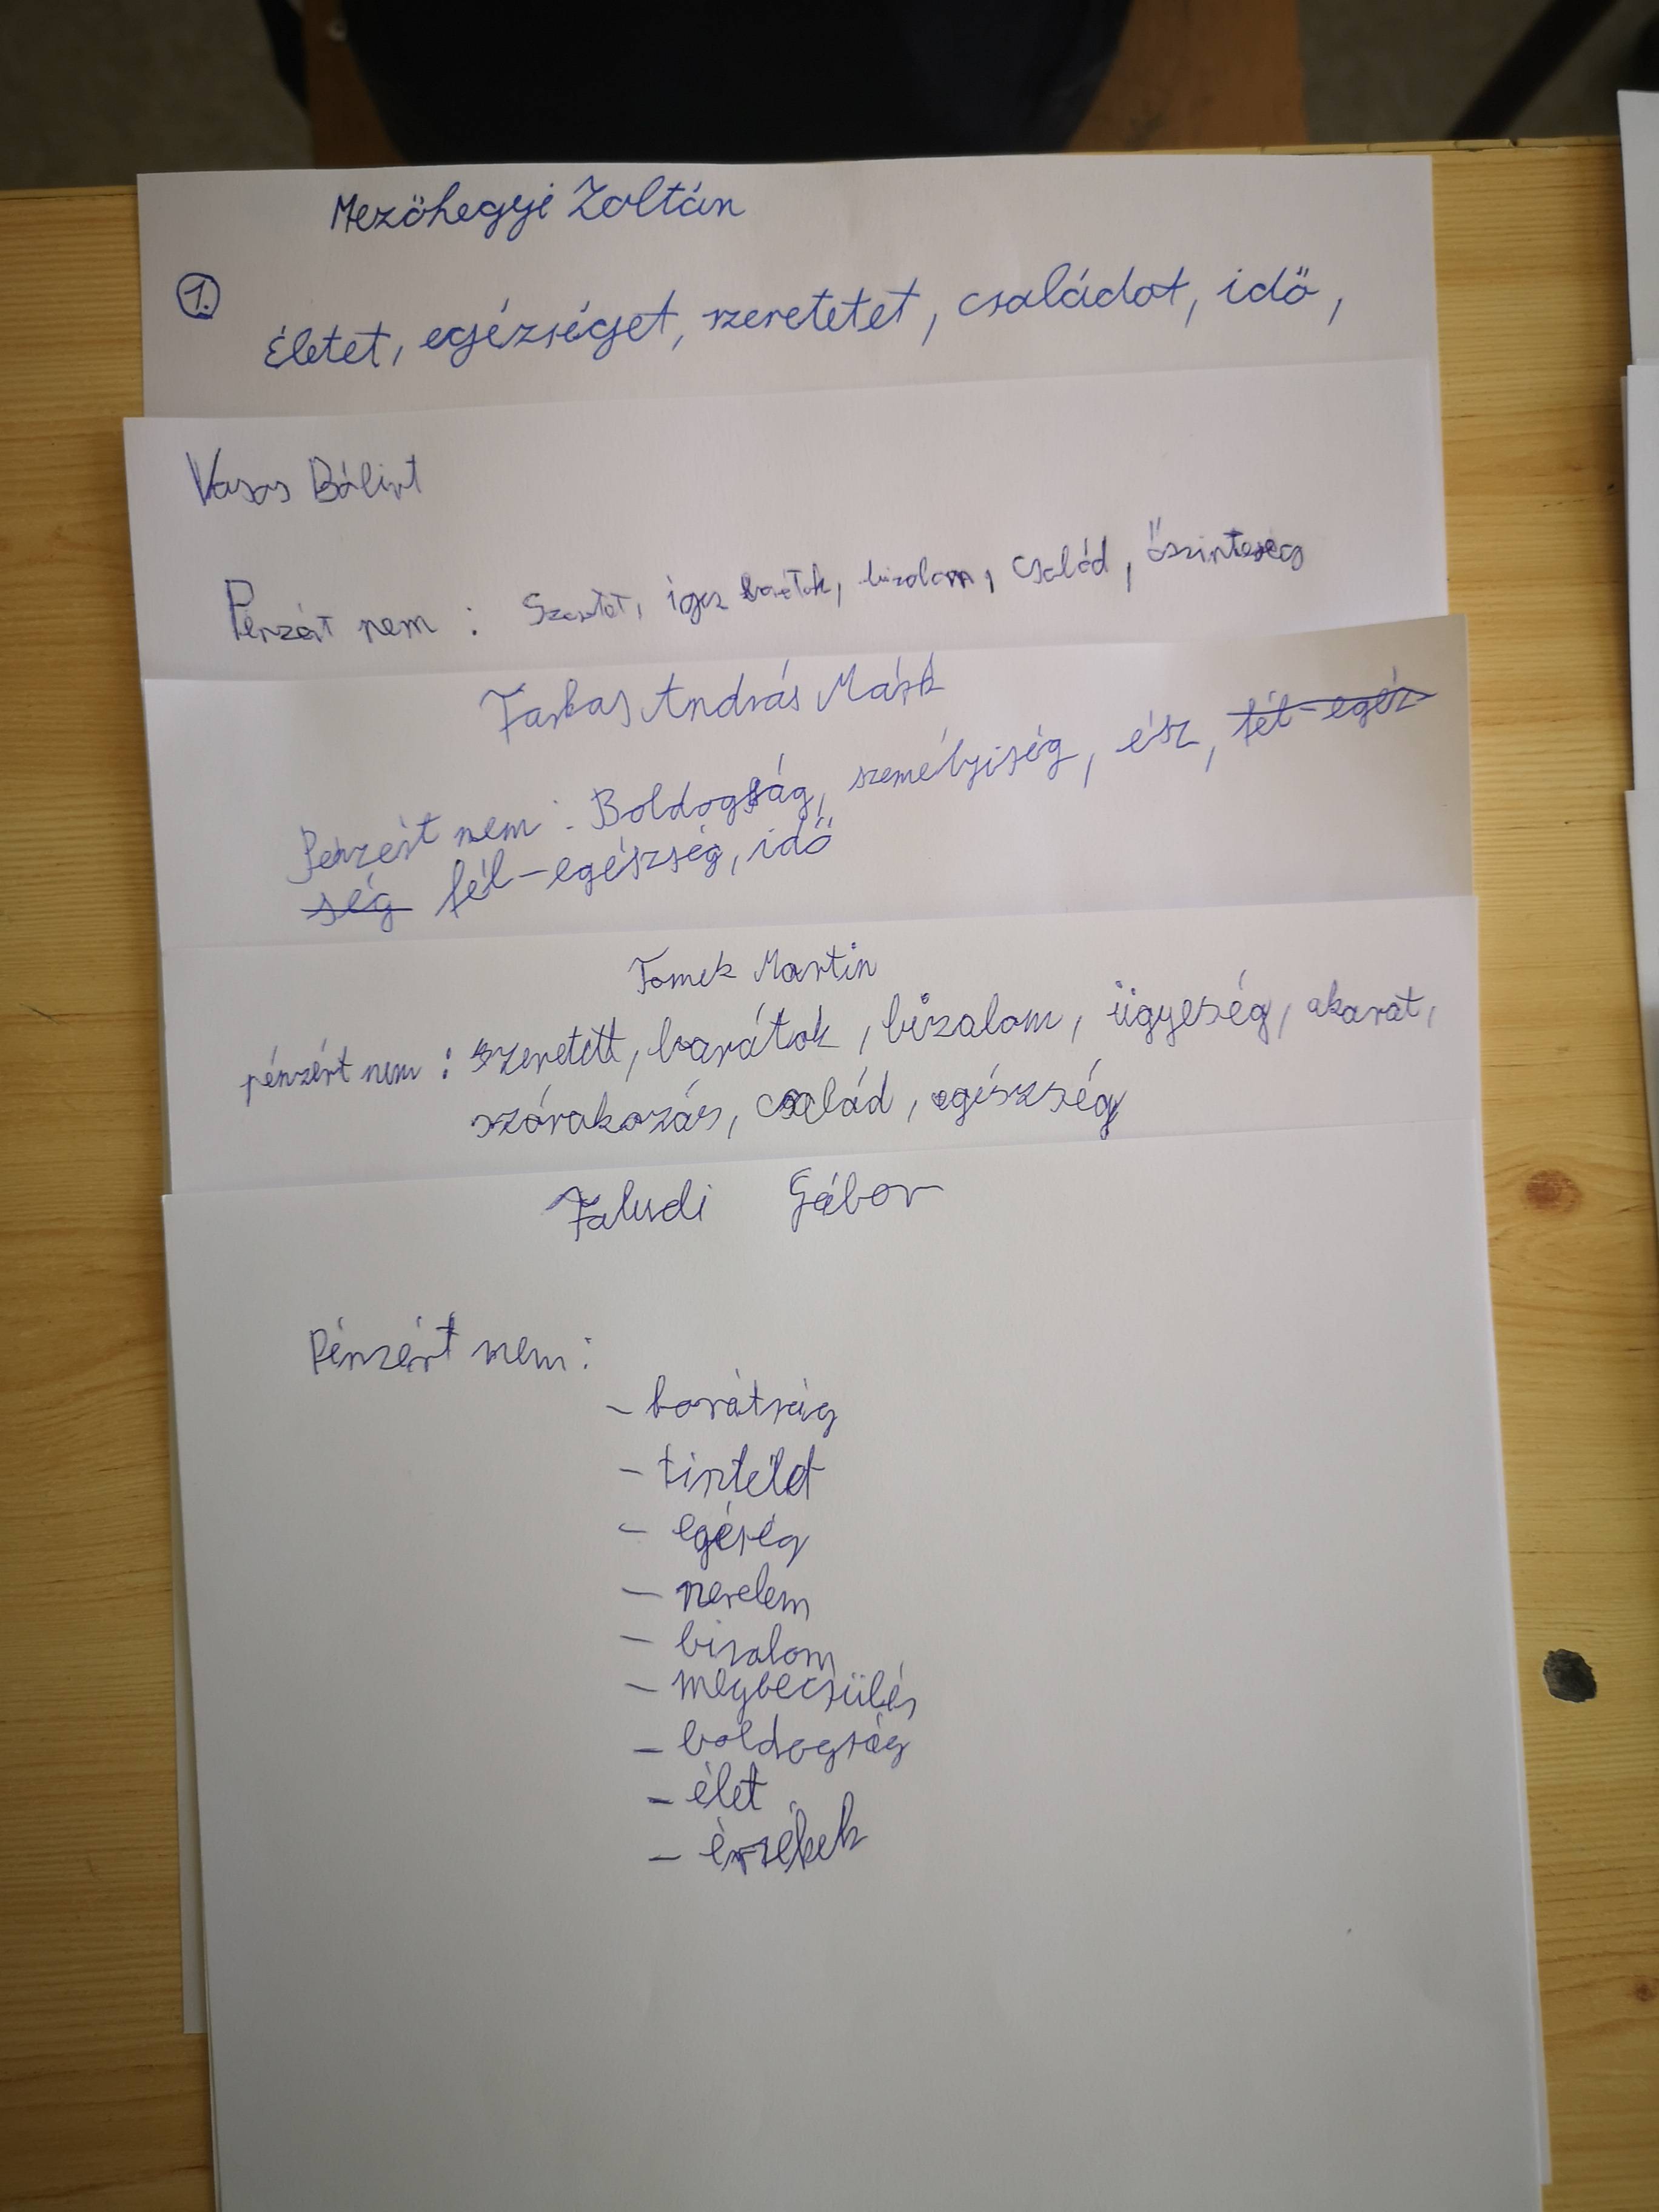 Mezőhegyi Zoltán
1.
életet, egézséget, szeretetet, családot, idő,
Vasas Bálint
Pénzért nem : Szeretet, igaz barátok, bizalom, család, őszinteség
Farkas András Márk
Pénzért nem : Boldogság, személyiség, ész, fél-egéz-
ség fél-egészség, idő
Tomek Martin
pénzért nem : szeretett, barátok, bizalom, ügyeség, akarat,
szórakozás, család, egészség
Faludi Gábor
Pénzért nem :
- barátság
- tisztelet
- egéség
- szerelem
- bizalom
- megbecsülés
- boldogság
- élet
- érzékek